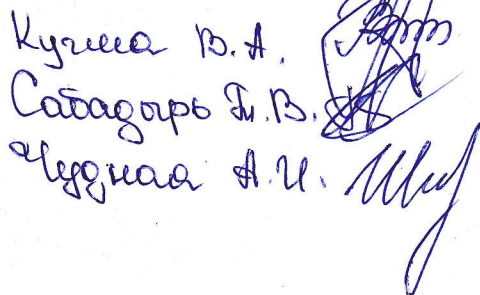 Кучма В.А.
Сабадырь Т.В.
Чудная А.И.